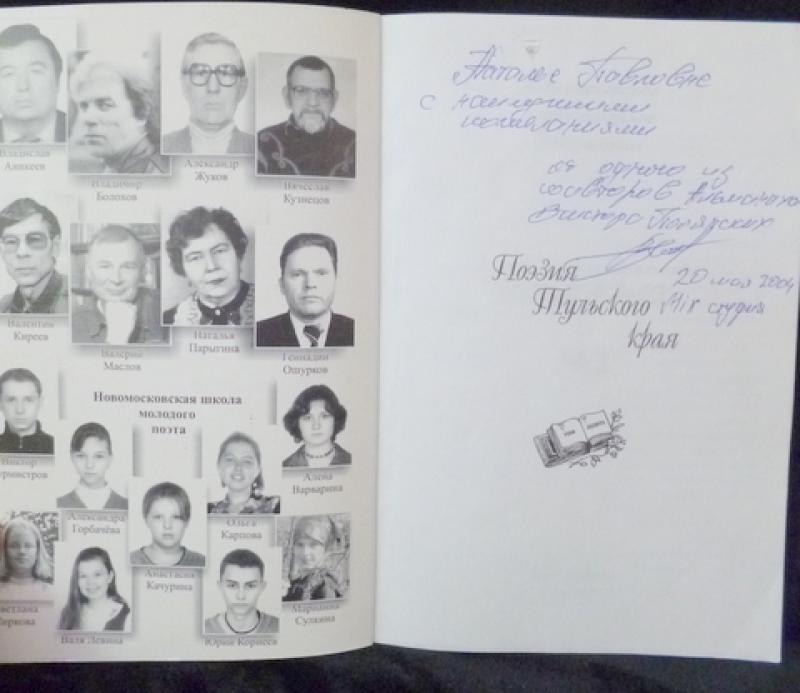 Владислав
Аникеев
Владимир
Болохов
Александр
Жуков
Вячеслав
Кузнецов
Валентин
Киреев
Валерий
Маслов
Наталья
Парыгина
Геннадий
Ошурков
Новомосковская школа
молодого
поэта
Виктор
Александра
Горбачёва
Ольга
Карпова
Алена
Варварина
Анастасия
Качурина
Марианна
Сулкина
Валя Левина
Юрий Корнеев
Наталье Павловне
с наилучшими
пожеланиями
от одного из
соавторов Альманаха
Виктора
20 мая 2004
Mir студия
Поэзия
Тульского
края